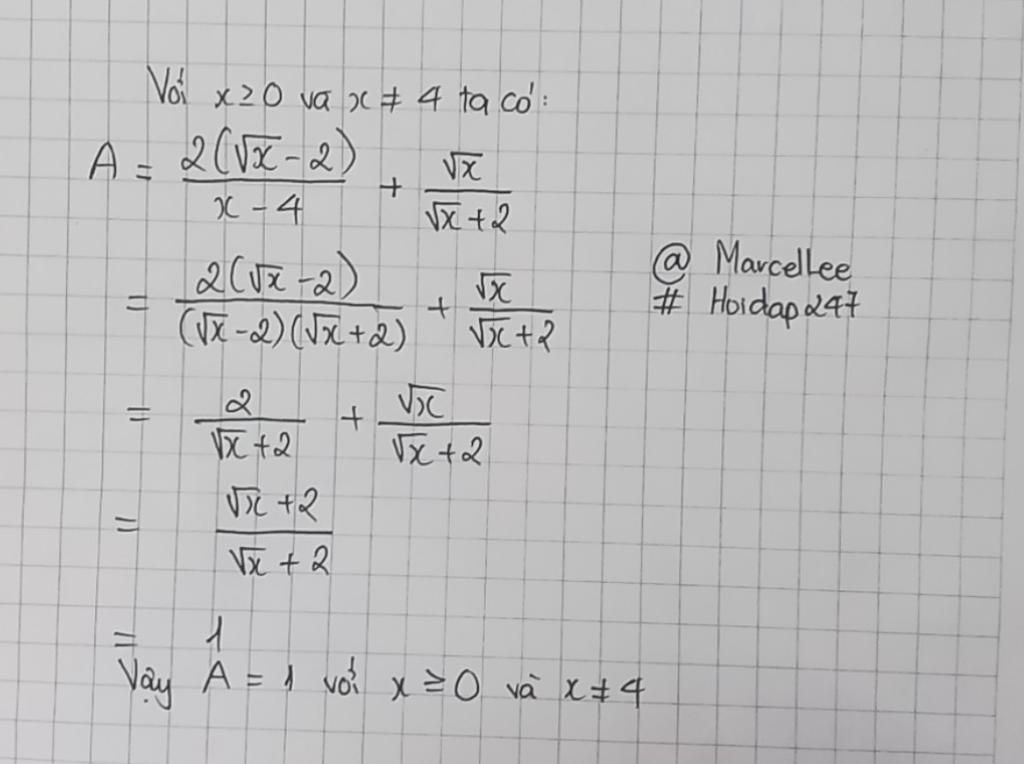 Với x ≥ 0 và x ≠ 4 ta có:
A = 2(√x - 2) / x - 4 + √x / √x + 2
= 2(√x - 2) / (√x - 2)(√x + 2) + √x / √x + 2
@ MarcelLee
# Hoidap247
= 2 / √x + 2 + √x / √x + 2
= √x + 2 / √x + 2
= 1
Vậy A = 1 với x ≥ 0 và x ≠ 4